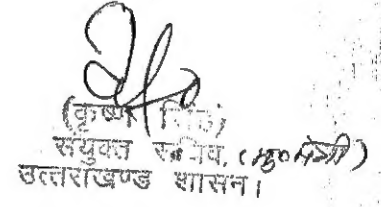 (कृष्ण सिंह)
संयुक्त सचिव,
उत्तराखण्ड शासन।